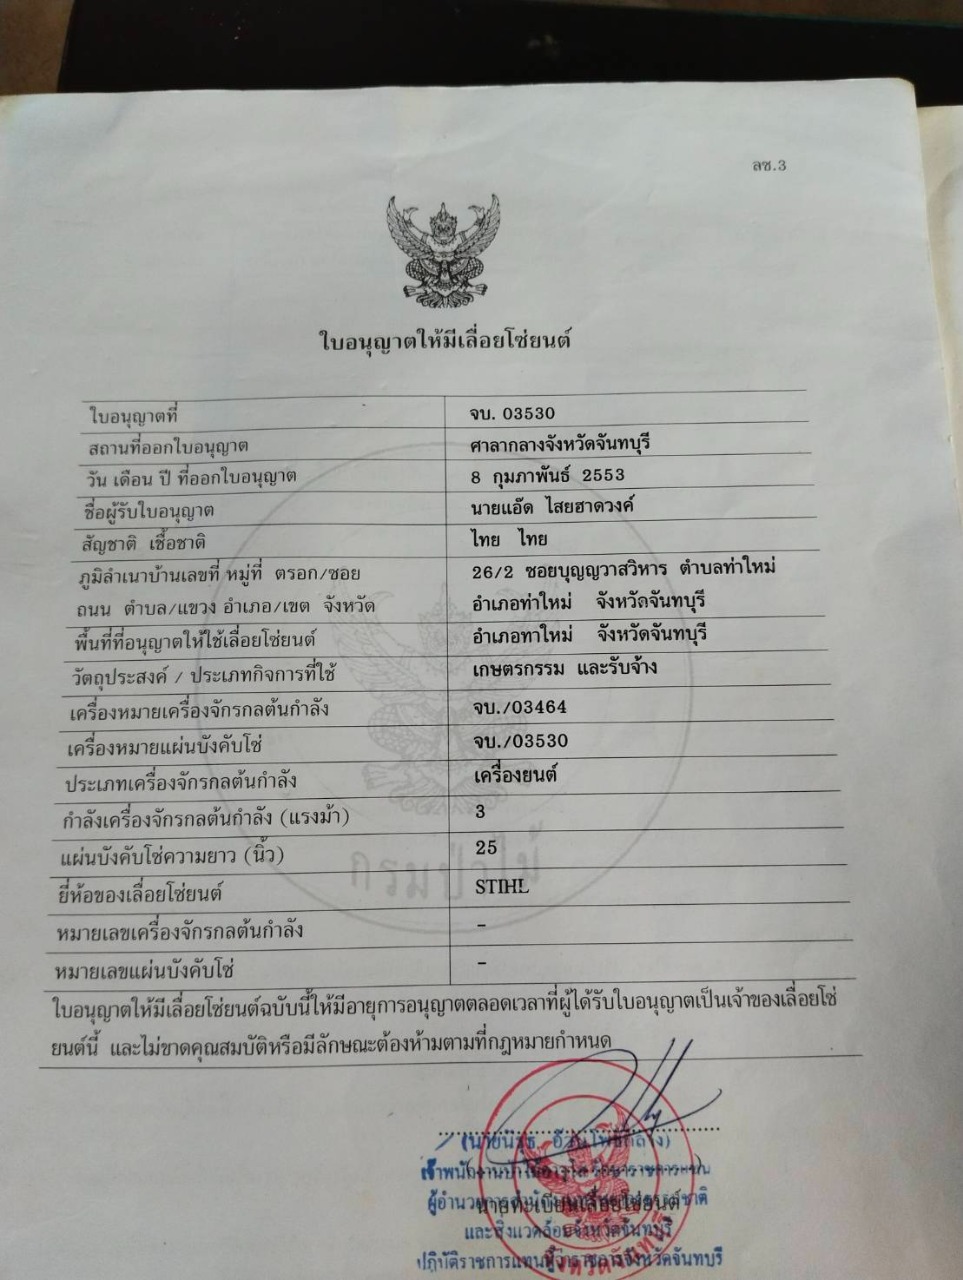 ลซ.3
ใบอนุญาตให้มีเลื่อยโซ่ยนต์
ใบอนุญาตที่ จบ. 03530
สถานที่ออกใบอนุญาต ศาลากลางจังหวัดจันทบุรี
วัน เดือน ปี ที่ออกใบอนุญาต 8 กุมภาพันธ์ 2553
ชื่อผู้รับใบอนุญาต นายแอ๊ด ไสยฮาดวงค์
สัญชาติ เชื้อชาติ ไทย ไทย
ภูมิลำเนาบ้านเลขที่ หมู่ที่ ตรอก/ซอย 26/2 ซอยบุญญวาสวิหาร ตำบลท่าใหม่
ถนน ตำบล/แขวง อำเภอ/เขต จังหวัด อำเภอท่าใหม่ จังหวัดจันทบุรี
พื้นที่ที่อนุญาตให้ใช้เลื่อยโซ่ยนต์ อำเภอทาใหม่ จังหวัดจันทบุรี
วัตถุประสงค์ / ประเภทกิจการที่ใช้ เกษตรกรรม และรับจ้าง
เครื่องหมายเครื่องจักรกลต้นกำลัง จบ./03464
เครื่องหมายแผ่นบังคับโซ่ จบ./03530
ประเภทเครื่องจักรกลต้นกำลัง เครื่องยนต์
กำลังเครื่องจักรกลต้นกำลัง (แรงม้า) 3
แผ่นบังคับโซ่ความยาว (นิ้ว) 25
กรมป่าไม้
ยี่ห้อของเลื่อยโซ่ยนต์ STIHL
หมายเลขเครื่องจักรกลต้นกำลัง -
หมายเลขแผ่นบังคับโซ่ -
ใบอนุญาตให้มีเลื่อยโซ่ยนต์ฉบับนี้ให้มีอายุการอนุญาตตลอดเวลาที่ผู้ได้รับใบอนุญาตเป็นเจ้าของเลื่อยโซ่
ยนต์นี้ และไม่ขาดคุณสมบัติหรือมีลักษณะต้องห้ามตามที่กฎหมายกำหนด
นายทะเบียนเลื่อยโซ่ยนต์
และสิ่งแวดล้อมจังหวัดจันทบุรี
ปฏิบัติราชการแทนผู้ว่าราชการจังหวัดจันทบุรี